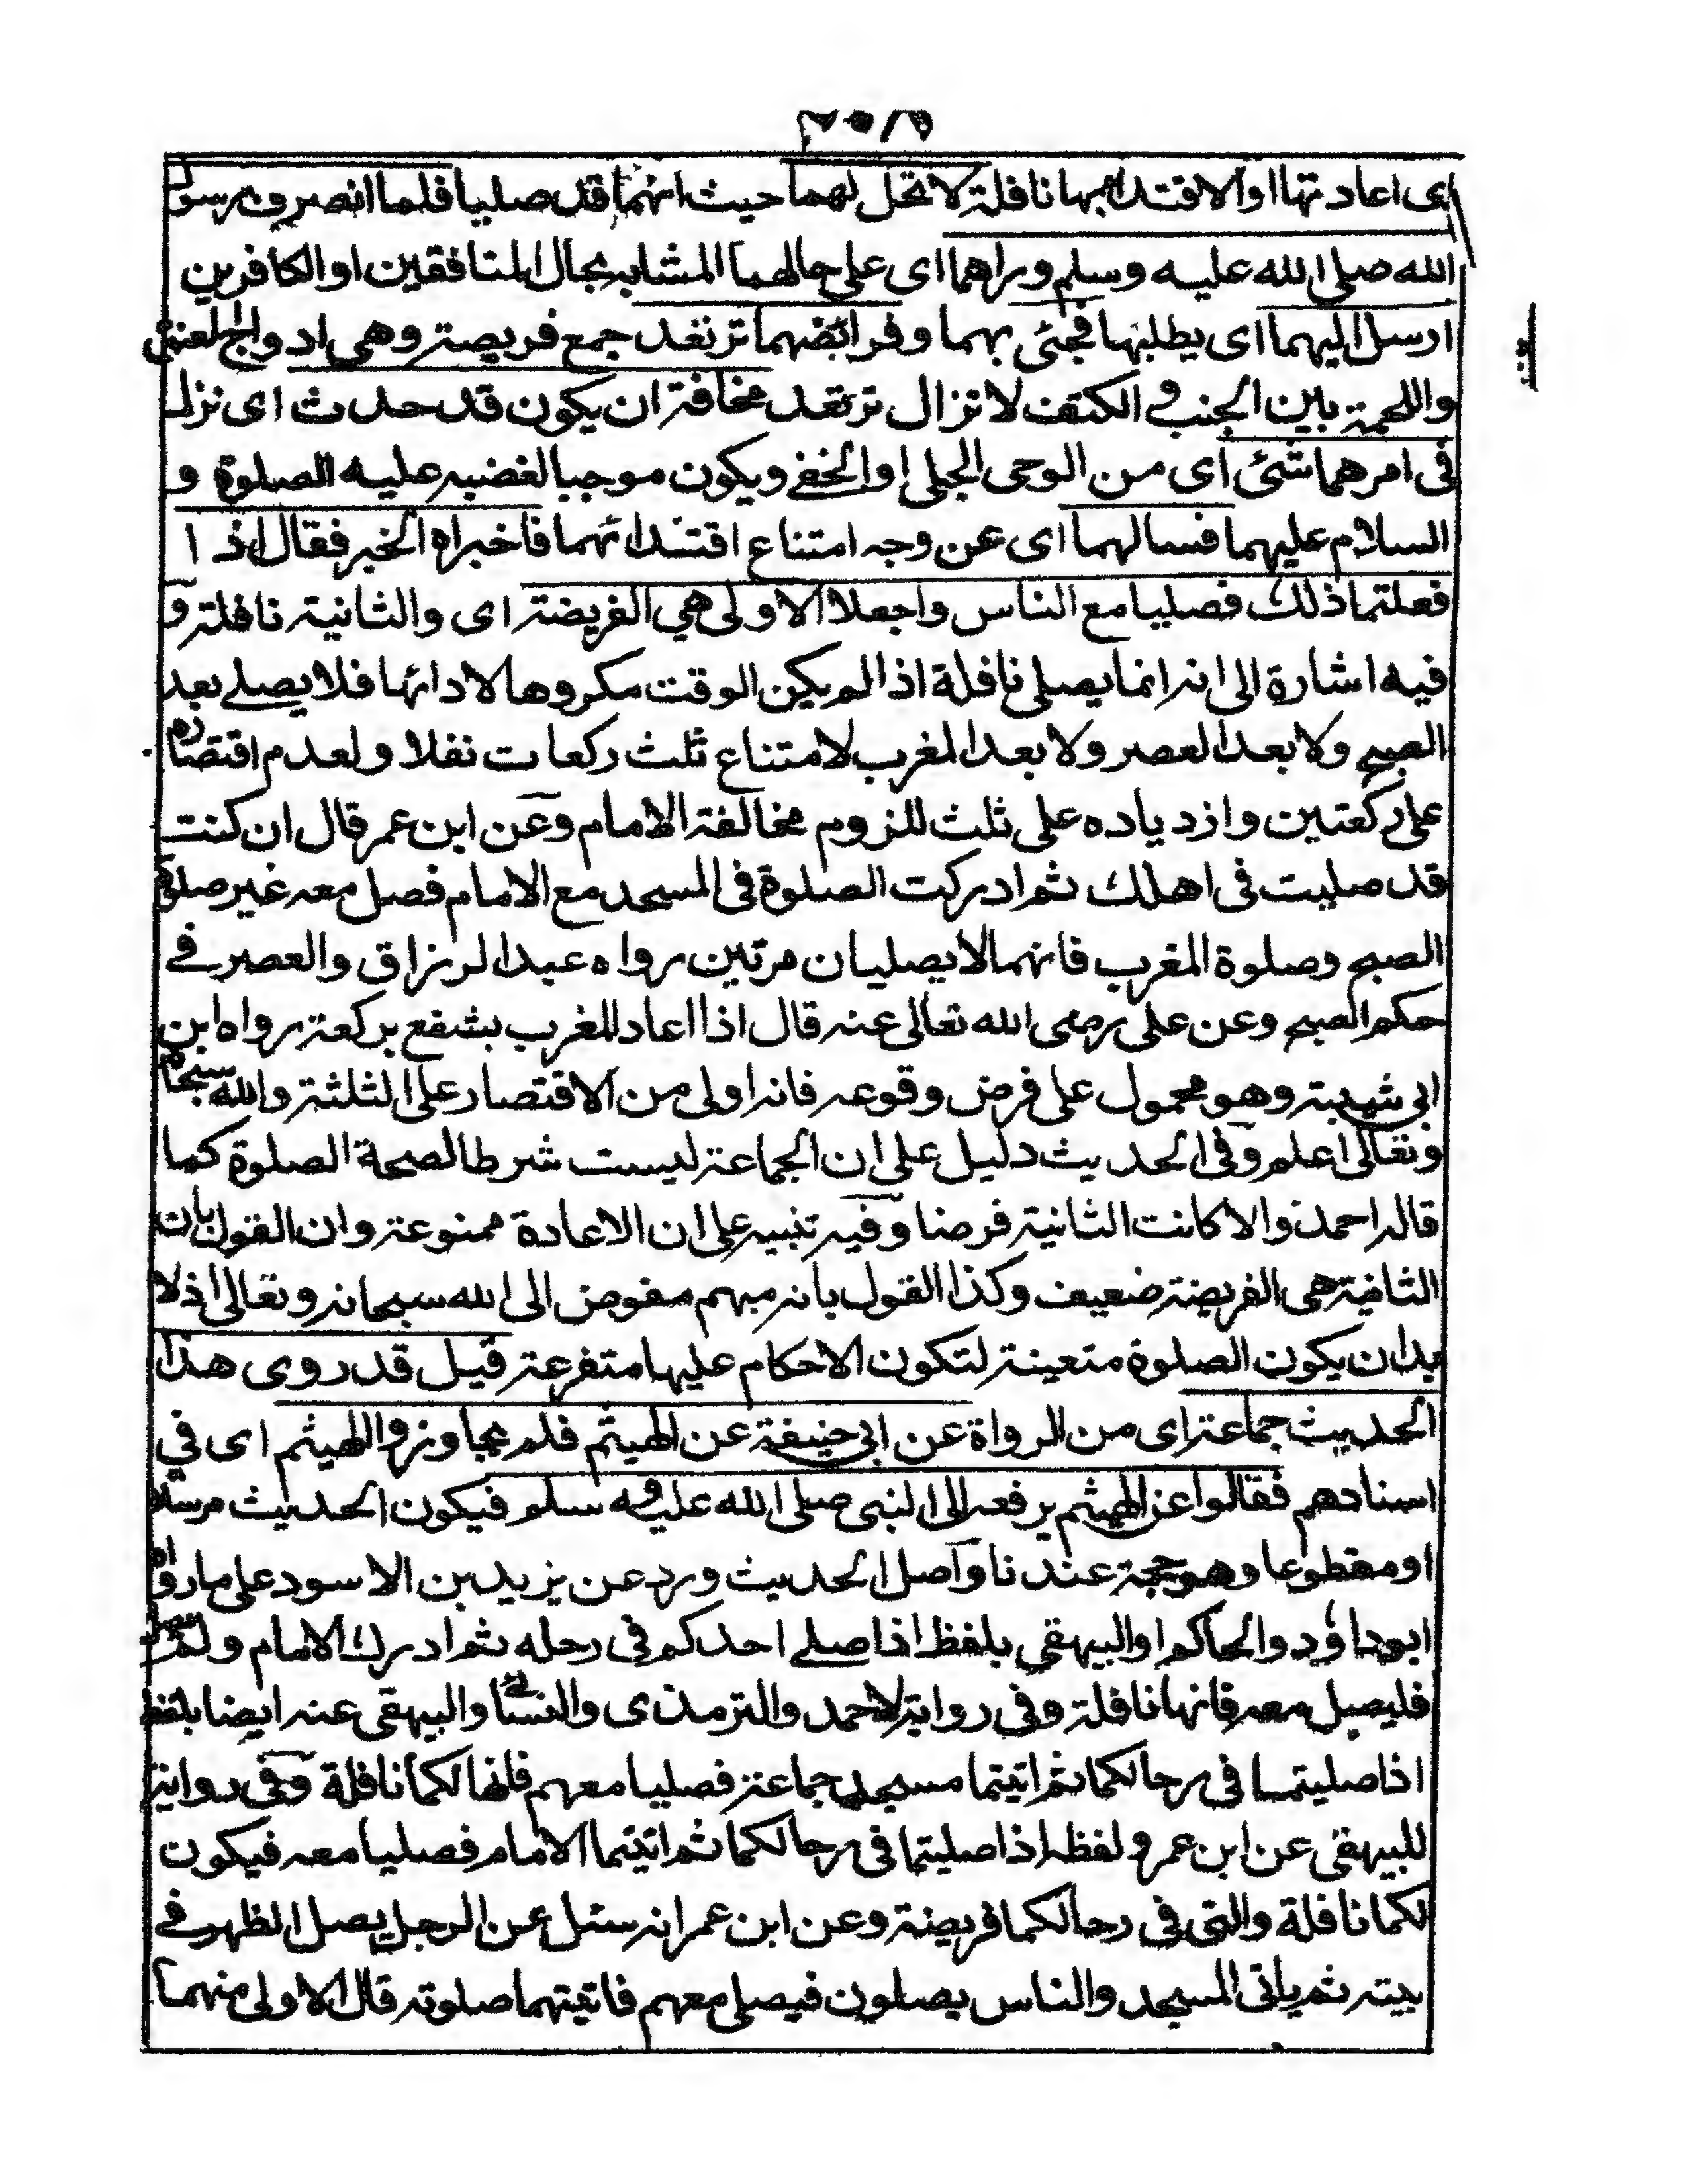 اى اعادتها او الاقتداء بها نافلة لا تحل لهما حيث انهما قد صليا فلما انصرف رسول
الله صلى الله عليه وسلم وراهما اى على حالهما المشابه بحال المنافقين او الكافرين
ارسل اليهما اى يطلبهما فجئى بهما وفرائضهما ترتعد جمع فريصة وهى ادواج العنق
واللحمة بين الجنب و الكتف لا تزال ترتعد مخافة ان يكون قد حدث اى نزل
فى امرهما شئى اى من الوحى الجلى او الخفے ويكون موجبا لغضبه عليه الصلوة و
السلام عليهما فسالهما اى عن وجه امتناع اقتدائهما فاخبراه الخبر فقال اذا
فعلتما ذلك فصليا مع الناس واجعلا الاولى هي الفريضة اى والثانية نافلة و
فيه اشارة الى انه انما يصلى نافلة اذا لم يكن الوقت مكروها لادائها فلا يصلے بعد
الصبح ولا بعد العصر ولا بعد المغرب لامتناع ثلث ركعات نفلا ولعدم اقتصاره
على ركعتين وازدياده على ثلث للزوم مخالفة الامام وعن ابن عمر قال ان كنت
قد صليت فى اهلك ثم ادركت الصلوة فى المسجد مع الامام فصل معه غير صلوة
الصبح وصلوة المغرب فانهما لا يصليان مرتين رواه عبد الرزاق والعصر فے
حكم الصبح وعن على رضى الله تعالى عنه قال اذا اعاد المغرب بشفع بركعة رواه ابن
ابى شيبة وهو محمول على فرض وقوعه فانه اولى من الاقتصار على الثلثة والله سبحانه
وتعالى اعلم وفى الحديث دليل على ان الجماعة ليست شرطا لصحة الصلوة كما
قاله احمد والا كانت الثانية فرضا وفيه تنبيه على ان الاعادة ممنوعة وان القول بان
الثانية هى الفريضة ضعيف وكذا القول بانه مبهم مفوض الى الله سبحانه وتعالى اذ لا
بد ان يكون الصلوة متعينة لتكون الاحكام عليها متفرعة قيل قد روى هذا
الحديث جماعة اى من الرواة عن ابى حنيفة عن الهيثم فلم يجاوزوا الهيثم اى في
اسنادهم فقالوا عن الهيثم يرفعه الى النبى صلى الله عليه و سلم فيكون الحديث مرسلا
او مقطوعا وهو حجة عندنا واصل الحديث ورد عن يزيد بن الاسود على ما رواه
ابو داؤد والحاكم والبيهقى بلفظ اذا صلے احدكم فى رحله ثم ادرك الامام ولم يصل
فليصل معه فانها نافلة وفى رواية لاحمد والترمذى والنسائى والبيهقى عنه ايضا بلفظ
اذا صليتما فى رحالكما ثم اتيتما مسجد جماعة فصليا معهم فانها لكما نافلة وفى رواية
للبيهقى عن ابن عمر و لفظه اذا صليتما فى رحالكما ثم اتيتما الامام فصليا معه فيكون
لكما نافلة والتى فى رحالكما فريضة وعن ابن عمر انه سئل عن الرجل يصل الظهر فے
بيته ثم ياتى المسجد والناس يصلون فيصلى معهم فاتيتهما صلوته قال الاولى منهما